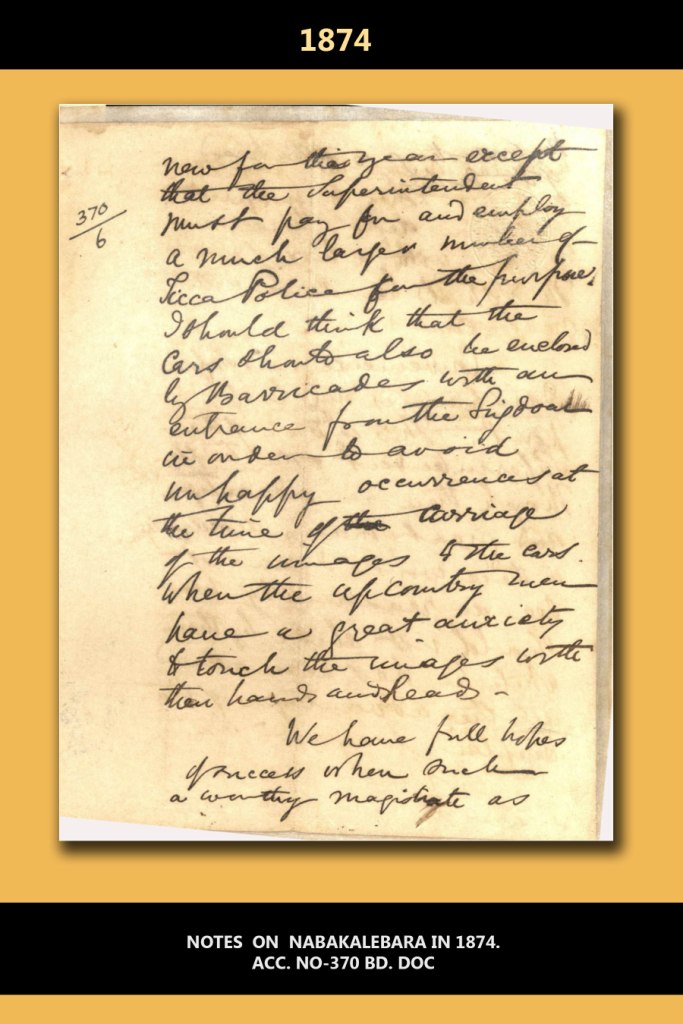 1874
370/6
new for this year except
that the Superintendent
must pay for and employ
a much larger number of
Ticca Police for the purpose.
I should think that the
cars should also be enclosed
by Barricades with an
entrance from the Singdoar
in order to avoid
unhappy occurrences at
the time of the carriage
of the images to the cars.
when the upcountry men
have a great anxiety
to touch the images with
their hands and heads -
We have full hopes
of success when such
a worthy magistrate as
NOTES ON NABAKALEBARA IN 1874.
ACC. NO-370 BD. DOC